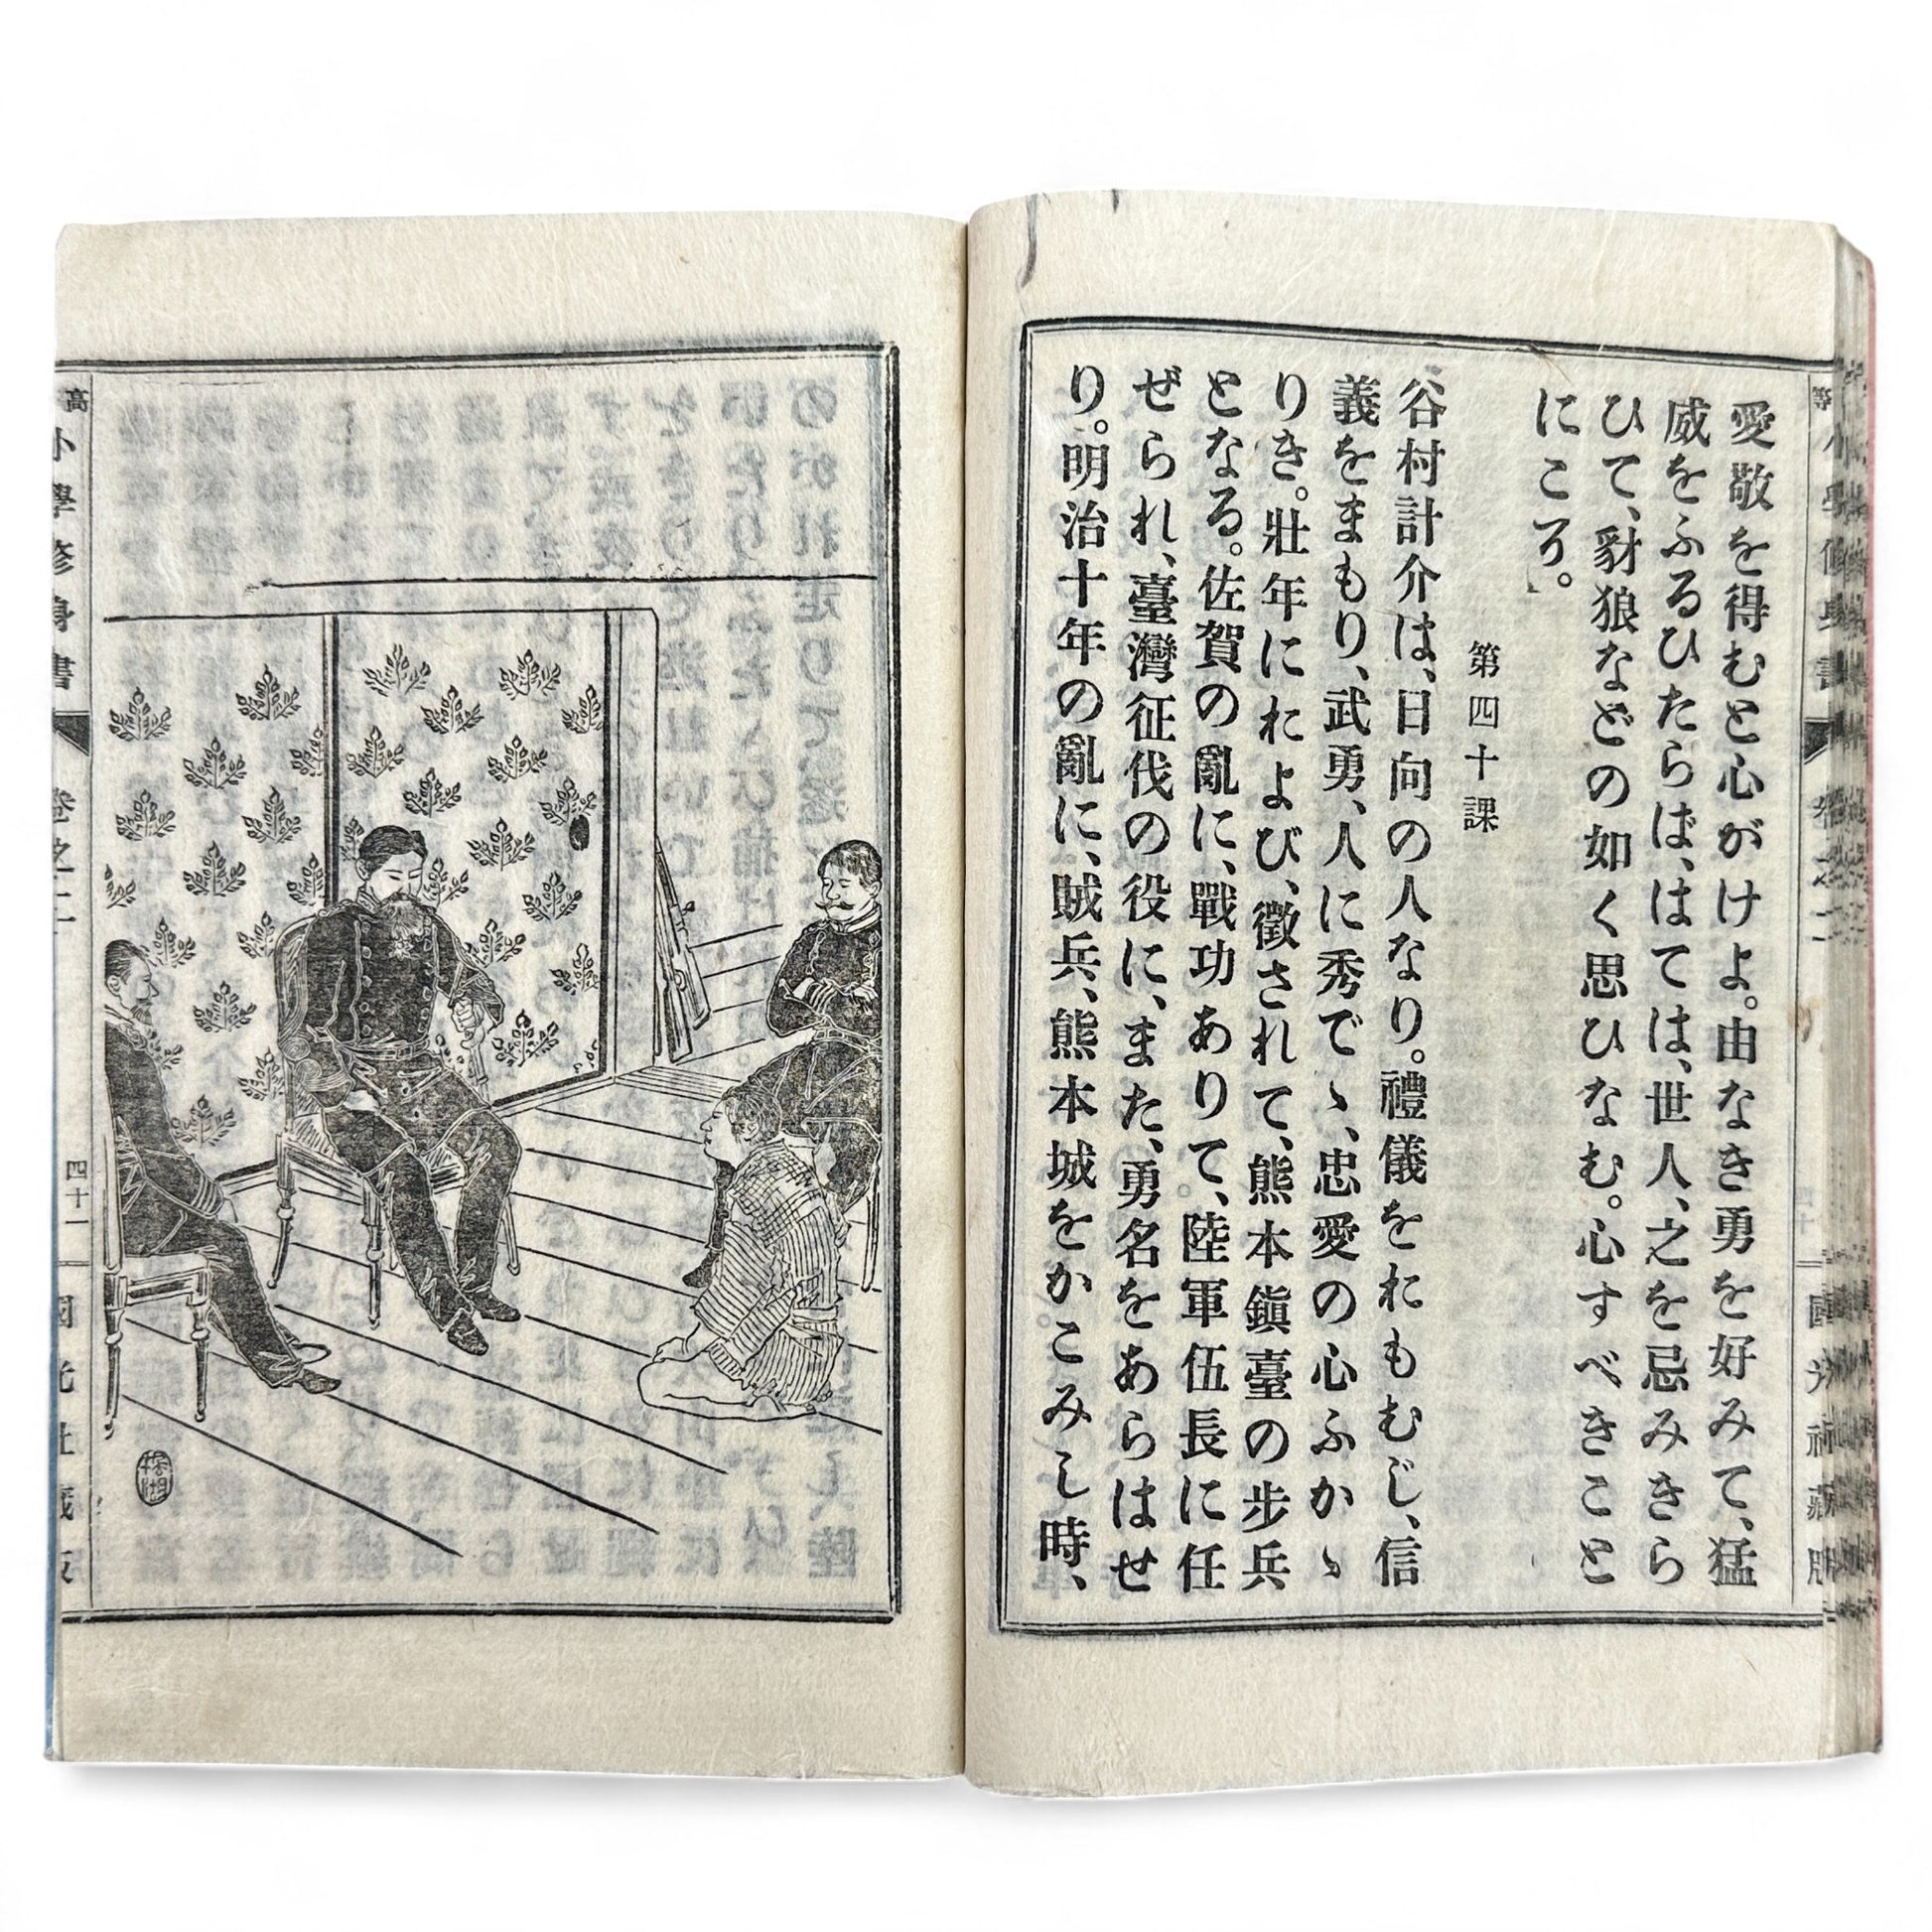 愛敬を得むと心がけよ。由なき勇を好みて、猛
威をふるひたらば、はては、世人、之を忌みきら
ひて、豺狼などの如く思ひなむ。心すべきこと
にこそ。
第四十課
谷村計介は、日向の人なり。禮儀をおもむじ、信
義をまもり、武勇、人に秀でゝ、忠愛の心ふかゝ
りき。壯年におよび、徵されて、熊本鎭臺の步兵
となる。佐賀の亂に、戰功ありて、陸軍伍長に任
ぜられ、臺灣征伐の役に、また、勇名をあらはせ
り。明治十年の亂に、賊兵、熊本城をかこみし時、
高
小學修身書
卷之二
四十一
國光社藏版